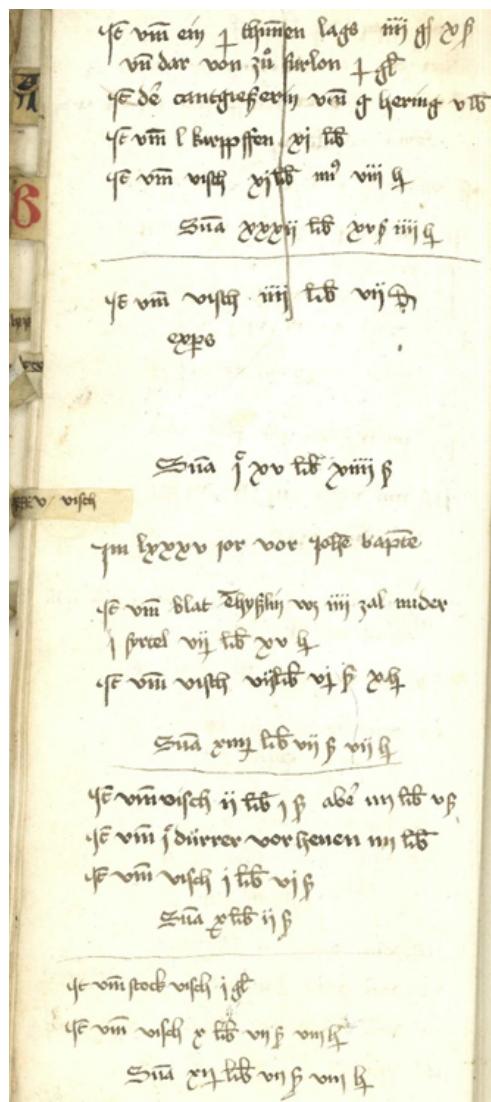 It vm̄ ein j thunnen lags iiij gl xv ß
vn̄ dar von zů furlon j gl̄
It de cantgiesserin vm̄ g hering v lb̄
It vm̄ l karpffen xj lib̄
It vm̄ visch xj lib̄ viii h
Sūa xxxij lib̄ xv ß iiij h
It vm̄ visch iiij lib̄ vij
exp̄s
Sūa xv lib̄ xiiij ß
visch
Im lxxxv jor vor Johe bapte
It vm̄ blat iiij zal nider
j virtel vij lib̄ xv h
It vm̄ visch vij lib̄ vj ß x h
Sūa xiiij lib̄ vii ß vii h
It vm̄ visch ii lib̄ j ß aber iiij lib̄ v ß
It vm̄ dürrer vorhenen iiij lib̄
It vm̄ visch j lib̄ vj ß
Sūa x lib̄ ii ß
It vm̄ stock visch j gl̄
It vm̄ visch x lib̄ vii ß viii h
Sūa xij lib̄ vii ß viii h